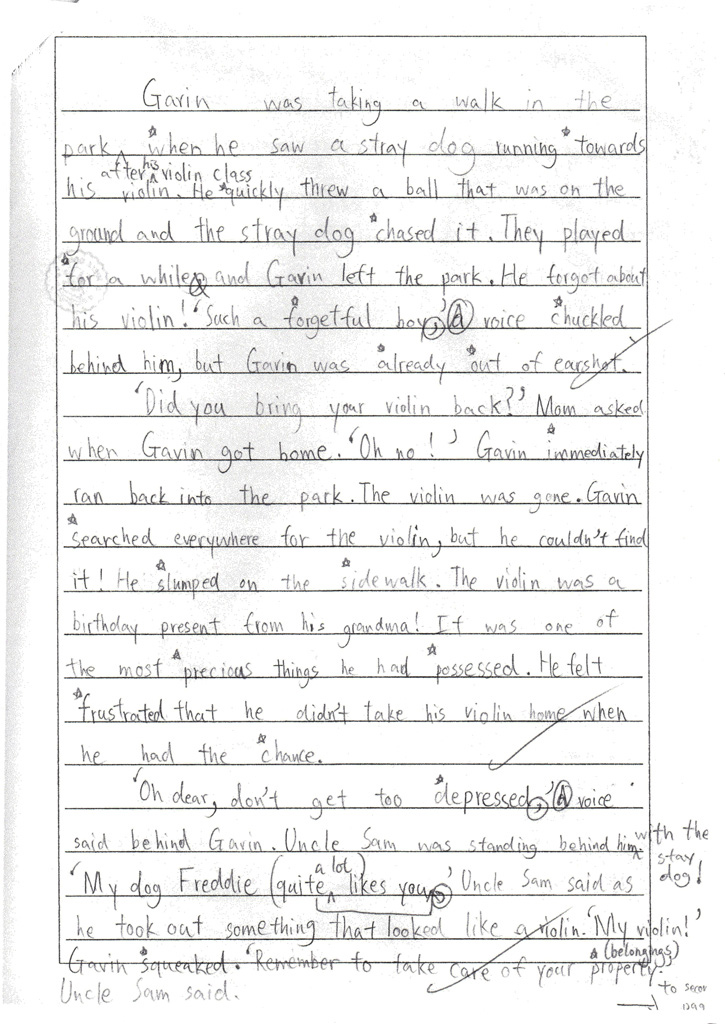 Gavin was taking a walk in the
park ^ when he saw a stray dog running towards
after his violin class
his violin. He quickly threw a ball that was on the
ground and the stray dog chased it. They played
for a while, and Gavin left the park. He forgot about
his violin! 'Such a forgetful boy,' a voice chuckled
behind him, but Gavin was already out of earshot.
'Did you bring your violin back?' Mom asked
when Gavin got home. 'Oh no!' Gavin immediately
ran back into the park. The violin was gone. Gavin
searched everywhere for the violin, but he couldn't find
it! He slumped on the sidewalk. The violin was a
birthday present from his grandma! It was one of
the most precious things he had possessed. He felt
frustrated that he didn't take his violin home when
he had the chance.
'Oh dear, don't get too depressed,' A voice
said behind Gavin. Uncle Sam was standing behind him ^ with the
stay
dog!
a lot)
'My dog Freddie (quite ^ likes you,' Uncle Sam said as
he took out something that looked like a violin. 'My violin!'
(belongings)
Gavin squeaked. 'Remember to take care of your property.'
Uncle Sam said.
to